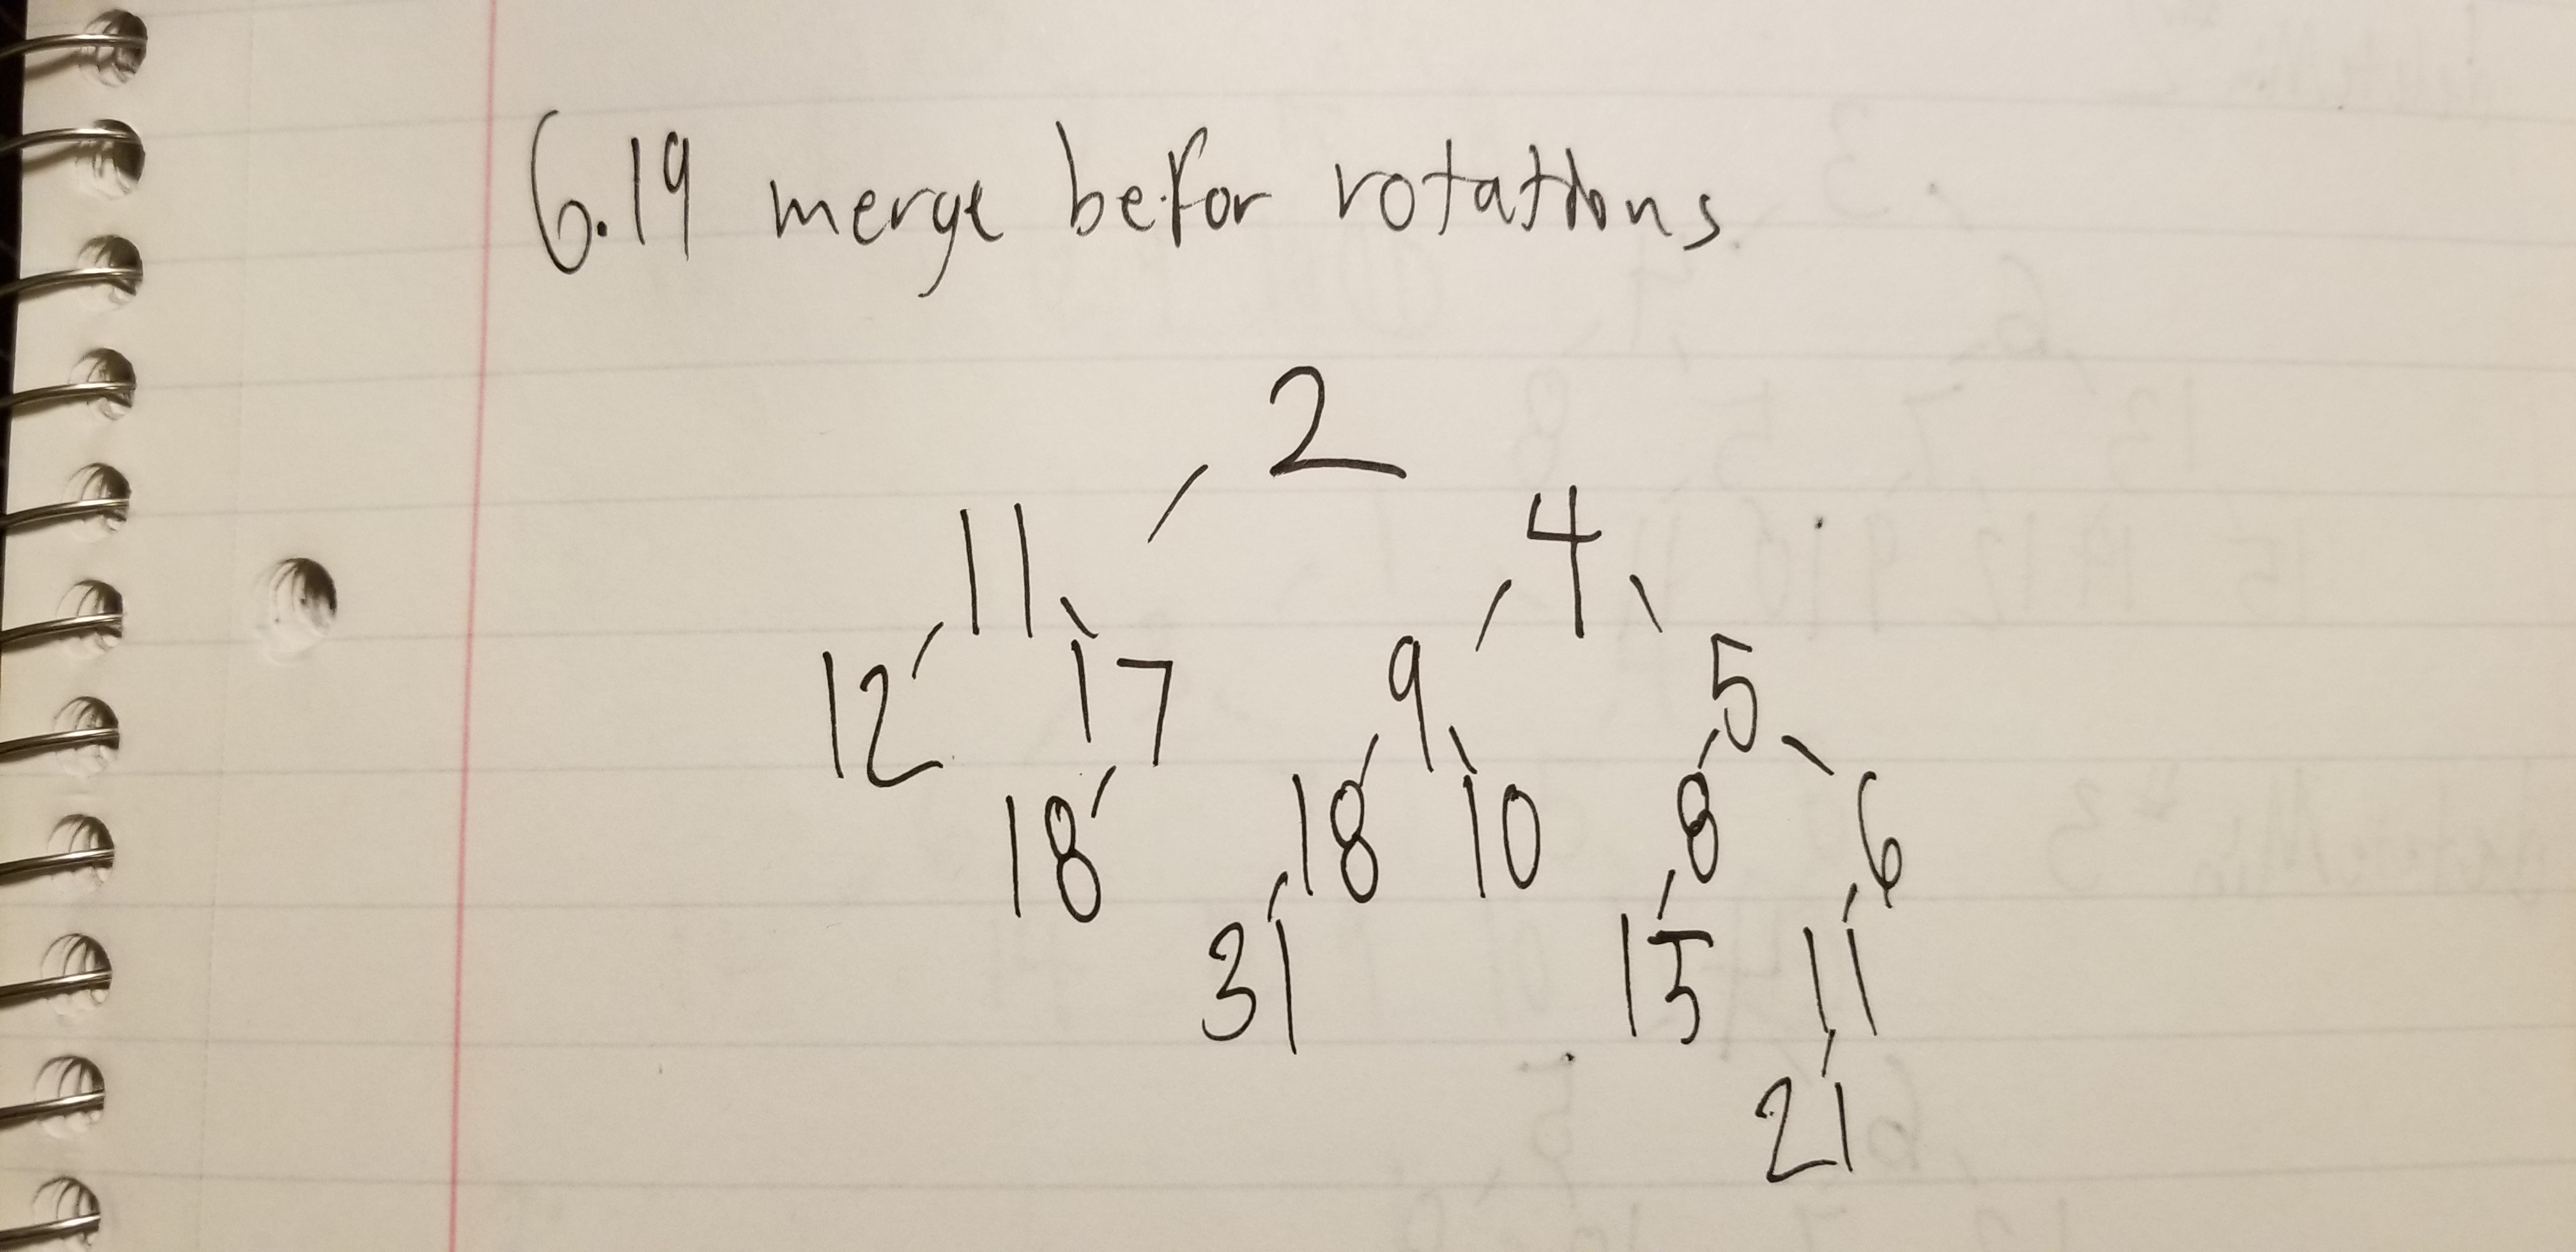 6.19 merge befor rotations
2
11 4
12 17 9 5
18 18 10 8 6
31 15 11
21